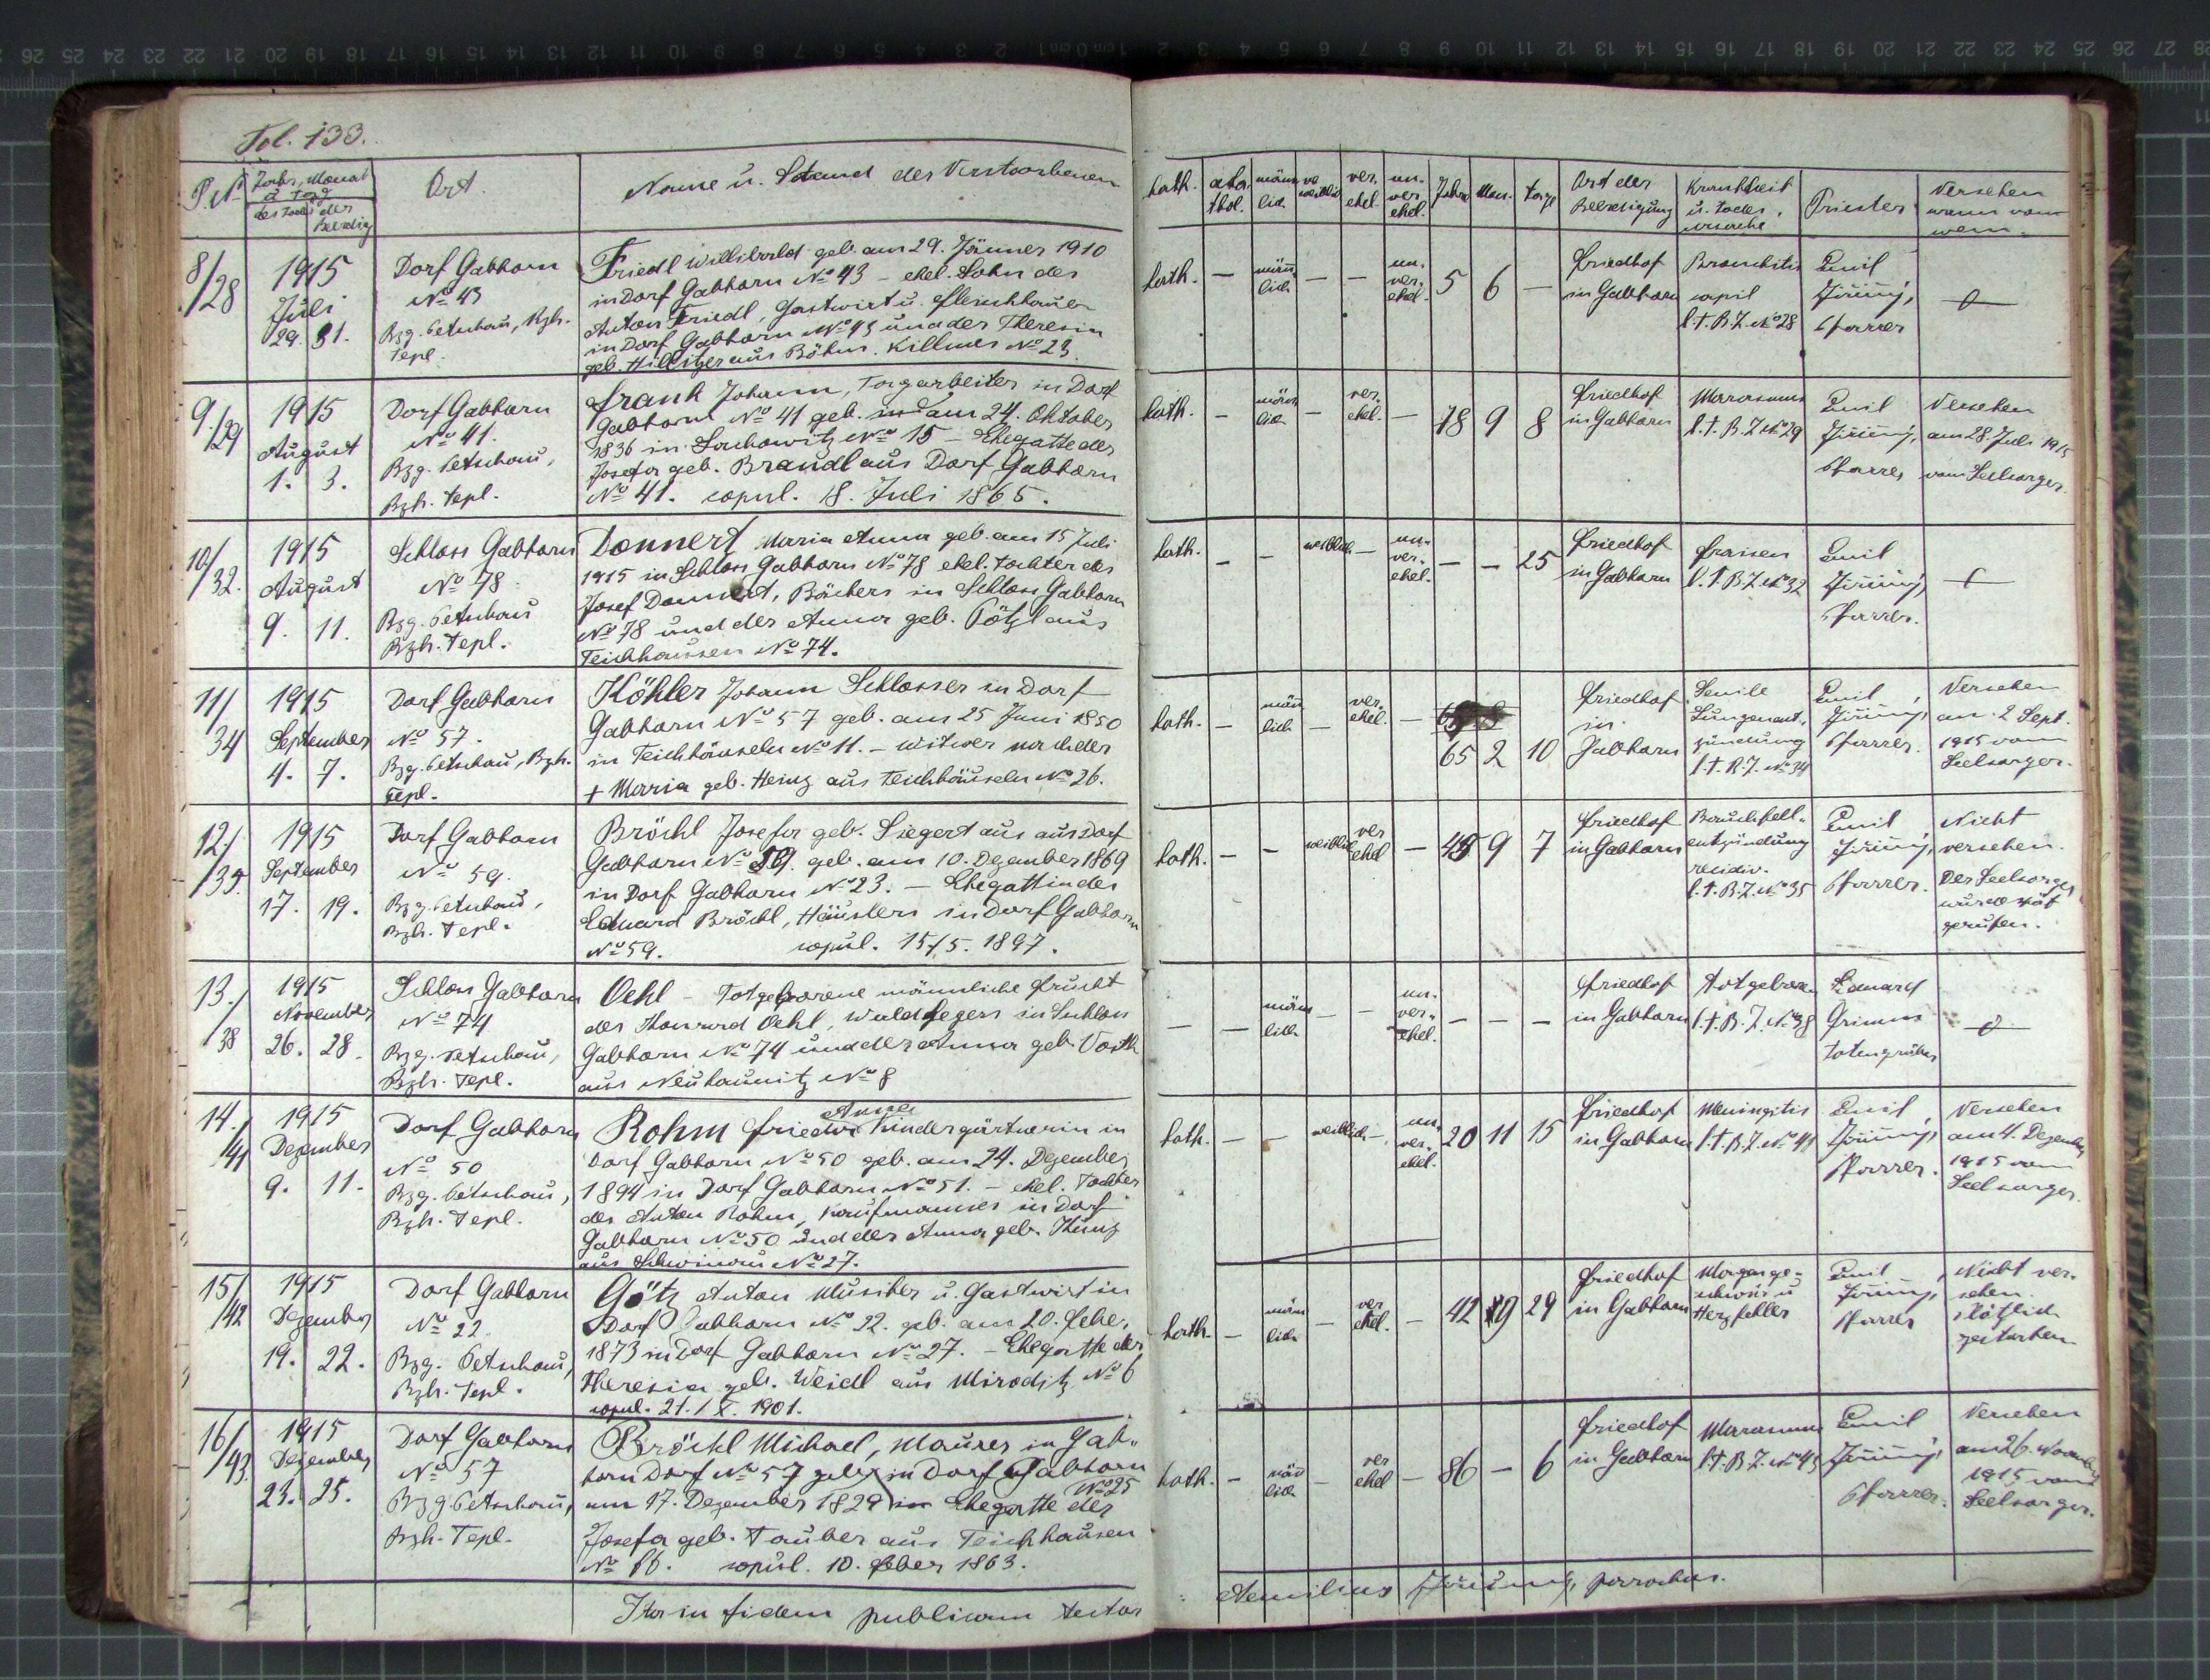 Fol. 133.
P. No Jahr, Monat u. Tag des Todes der Beerdig Ort. Name u. Stand des Verstorbenen
kath. akathol. männlich weiblich verehel. unverehel. Jahre Mon. Tage Ort der Beerdigung Krankheit u. Todesursache Priester Versehen wann von wem.
8/28 1915 Juli 29. 31.
Dorf Gabhorn
No 43
Bzg. Petschau, Bzh.
Tepl.
Friedl Willibald geb. am 29. Jänner 1910
in Dorf Gabhorn No 43 – ehel. Sohn des
Anton Friedl, Gastwirt u. Fleischhauer
in Dorf Gabhorn No 43 und der Theresia
geb. Hillitzer aus Böhm. Killmes No 23.
kath. – männlich – – unverehel. 5 6 –
Friedhof
in Gabhorn
Bronchitis
capil
l. T. B. Z. No 28
Emil
Pfarrer
9./29 1915 August 1. 3.
Dorf Gabhorn
No 41.
Bzg. Petschau,
Bzh. Tepl.
Frank Johann, Tagarbeiter in Dorf
Gabhorn No 41 geb. am 24. Oktober
1836 in Sochowitz No 15 – Ehegatte der
Josefa geb. Brandl aus Dorf Gabhorn
No 41. copul. 18. Juli 1865.
kath. – männlich – verehel. – 78 9 8
Friedhof
in Gabhorn
Marasmus
l. T. B. Z. No 29
Emil
Pfarrer
Versehen
am 28. Juli 1915
vom Seelsorger.
10/32. 1915 August 9. 11.
Schloss Gabhorn
No 78
Bzg. Petschau
Bzh. Tepl.
Donnert Maria Anna geb. am 15 Juli
1915 in Schloss Gabhorn No 78 ehel. Tochter des
Josef Donnert, Bäckers in Schloss Gabhorn
No 78 und der Anna geb. Pötzl aus
Teichhausen No 74.
kath. – – weiblich – unverehel. – – 25
Friedhof
in Gabhorn
Fraisen
l. T. B. Z. No 32
Emil
Pfarrer.
11/34 1915 September 4. 7.
Dorf Gabhorn
No 57.
Bzg. Petschau, Bzh.
Tepl.
Köhler Johann Schlosser in Dorf
Gabhorn No 57 geb. am 25 Juni 1850
in Teichhäuseln No 11. – Witwer nach der
+ Maria geb. Heinz aus Teichhäuseln No 26.
kath. – männlich – verehel. – 65 2 10
Friedhof
in
Gabhorn
Senile
Lungenent-
zündung
l. T. B. Z. No 34
Emil
Pfarrer.
Versehen
am 2 Sept.
1915 vom
Seelsorger.
12./35. 1915 September 17. 19.
Dorf Gabhorn
No 59.
Bzg. Petschau,
Bzh. Tepl.
Bröckl Josefa geb. Siegert aus aus Dorf
Gabhorn No 59. geb. am 10. Dezember 1869
in Dorf Gabhorn No 23. – Ehegattin des
Eduard Bröckl, Häuslers in Dorf Gabhorn
No 59. copul. 15/5. 1897.
kath. – – weiblich verehel – 45 9 7
Friedhof
in Gabhorn
Bauchfell-
entzündung
recidiv.
l. T. B. Z. No 35
Emil
Pfarrer.
Nicht
versehen.
Der Seelsorger
wurde spät
gerufen.
13./38 1915 November 26. 28.
Schloss Gabhorn
No 74
Bzg. Petschau,
Bzh. Tepl.
Oehl – Totgeborene männliche Frucht
des Konrad Oehl, Waldhegers in Schloss
Gabhorn No 74 und der Anna geb. Voith
aus Neukaunitz No 8
– – männlich – – unverehel. – – –
Friedhof
in Gabhorn
Totgeboren
l. T. B. Z. No 38
Eduard
Grimm
Totengräber
14./41 1915 Dezember 9. 11.
Dorf Gabhorn
No 50
Bzg. Petschau,
Bzh. Tepl.
Anna
Rohm Frieda Kindergärtnerin in
Dorf Gabhorn No 50 geb. am 24. Dezember
1894 in Dorf Gabhorn No 51. – ehel. Tochter
des Anton Rohm, Kaufmannes in Dorf
Gabhorn No 50 und der Anna geb. Kunz
aus Schwinau No 27.
kath. – – weiblich – unverehel. 20 11 15
Friedhof
in Gabhorn
Meningitis
l. T. B. Z. No 41
Emil
Pfarrer.
Versehen
am 4. Dezember
1915 vom
Seelsorger.
15/42 1915 Dezember 19. 22.
Dorf Gabhorn
No 22.
Bzg. Petschau,
Bzh. Tepl.
Götz Anton Musiker u. Gastwirt in
Dorf Gabhorn No 22. geb. am 20. Feber
1873 in Dorf Gabhorn No 27. – Ehegatte der
Theresia geb. Weidl aus Miroditz No 6
copul. 21./X. 1901.
kath. – männlich – verehel. – 42 9 29
Friedhof
in Gabhorn
Magenge-
schwür u
Herzfehler
Emil
Pfarrer
Nicht ver-
sehen.
plötzlich
gestorben
16/43. 1915 Dezember 23. 25.
Dorf Gabhorn
No 57
Bzg. Petschau,
Bzh. Tepl.
Bröckl Michael, Maurer in Gab-
horn Dorf No 57 geb. in Dorf Gabhorn
No 25
am 17. Dezember 1829 Ehegatte der
Josefa geb. Tauber aus Teichhausen
No 66. copul. 10. Feber 1863.
kath. – männlich – verehel – 86 – 6
Friedhof
in Gabhorn
Marasmus
l. T. B. Z. No 43
Emil
Pfarrer.
Versehen
am 26. November
1915 vom
Seelsorger.
Ita in fidem publicam testor
Aemilius parochus.